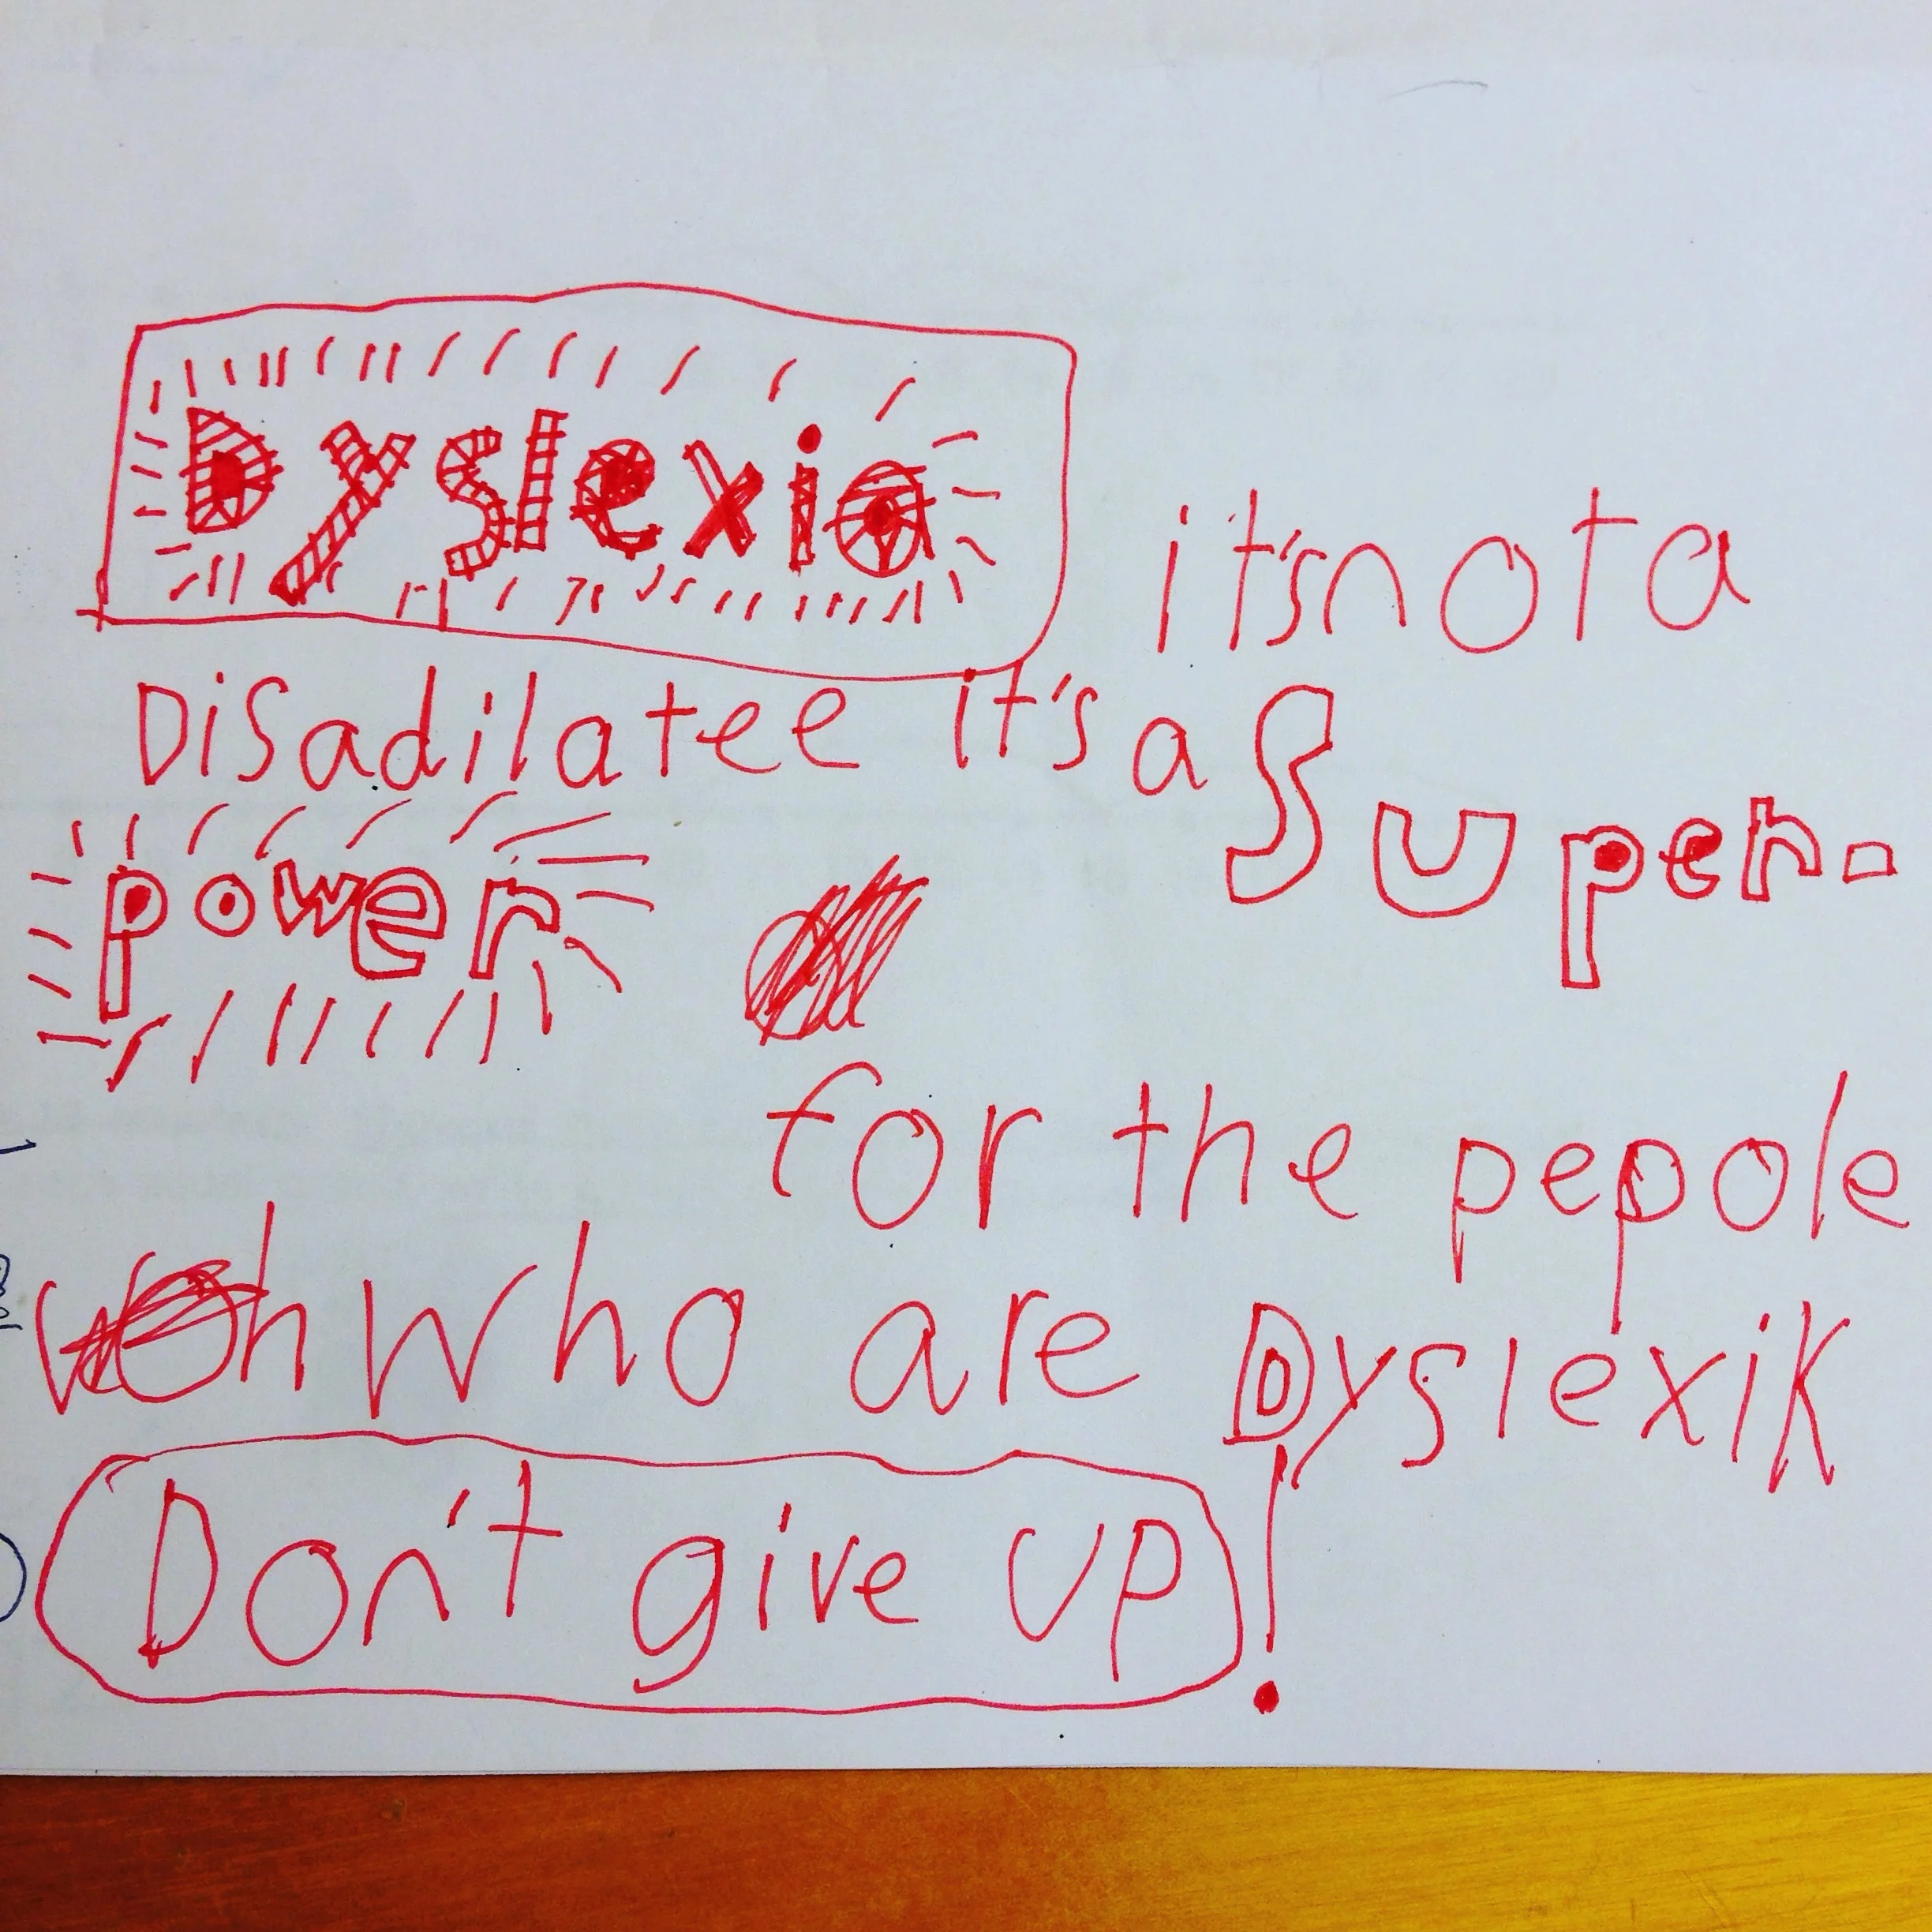 Dyslexia it's not a
Disadilatee it's a Super-
power
for the pepole
who are DyslexiK
Don't give up!